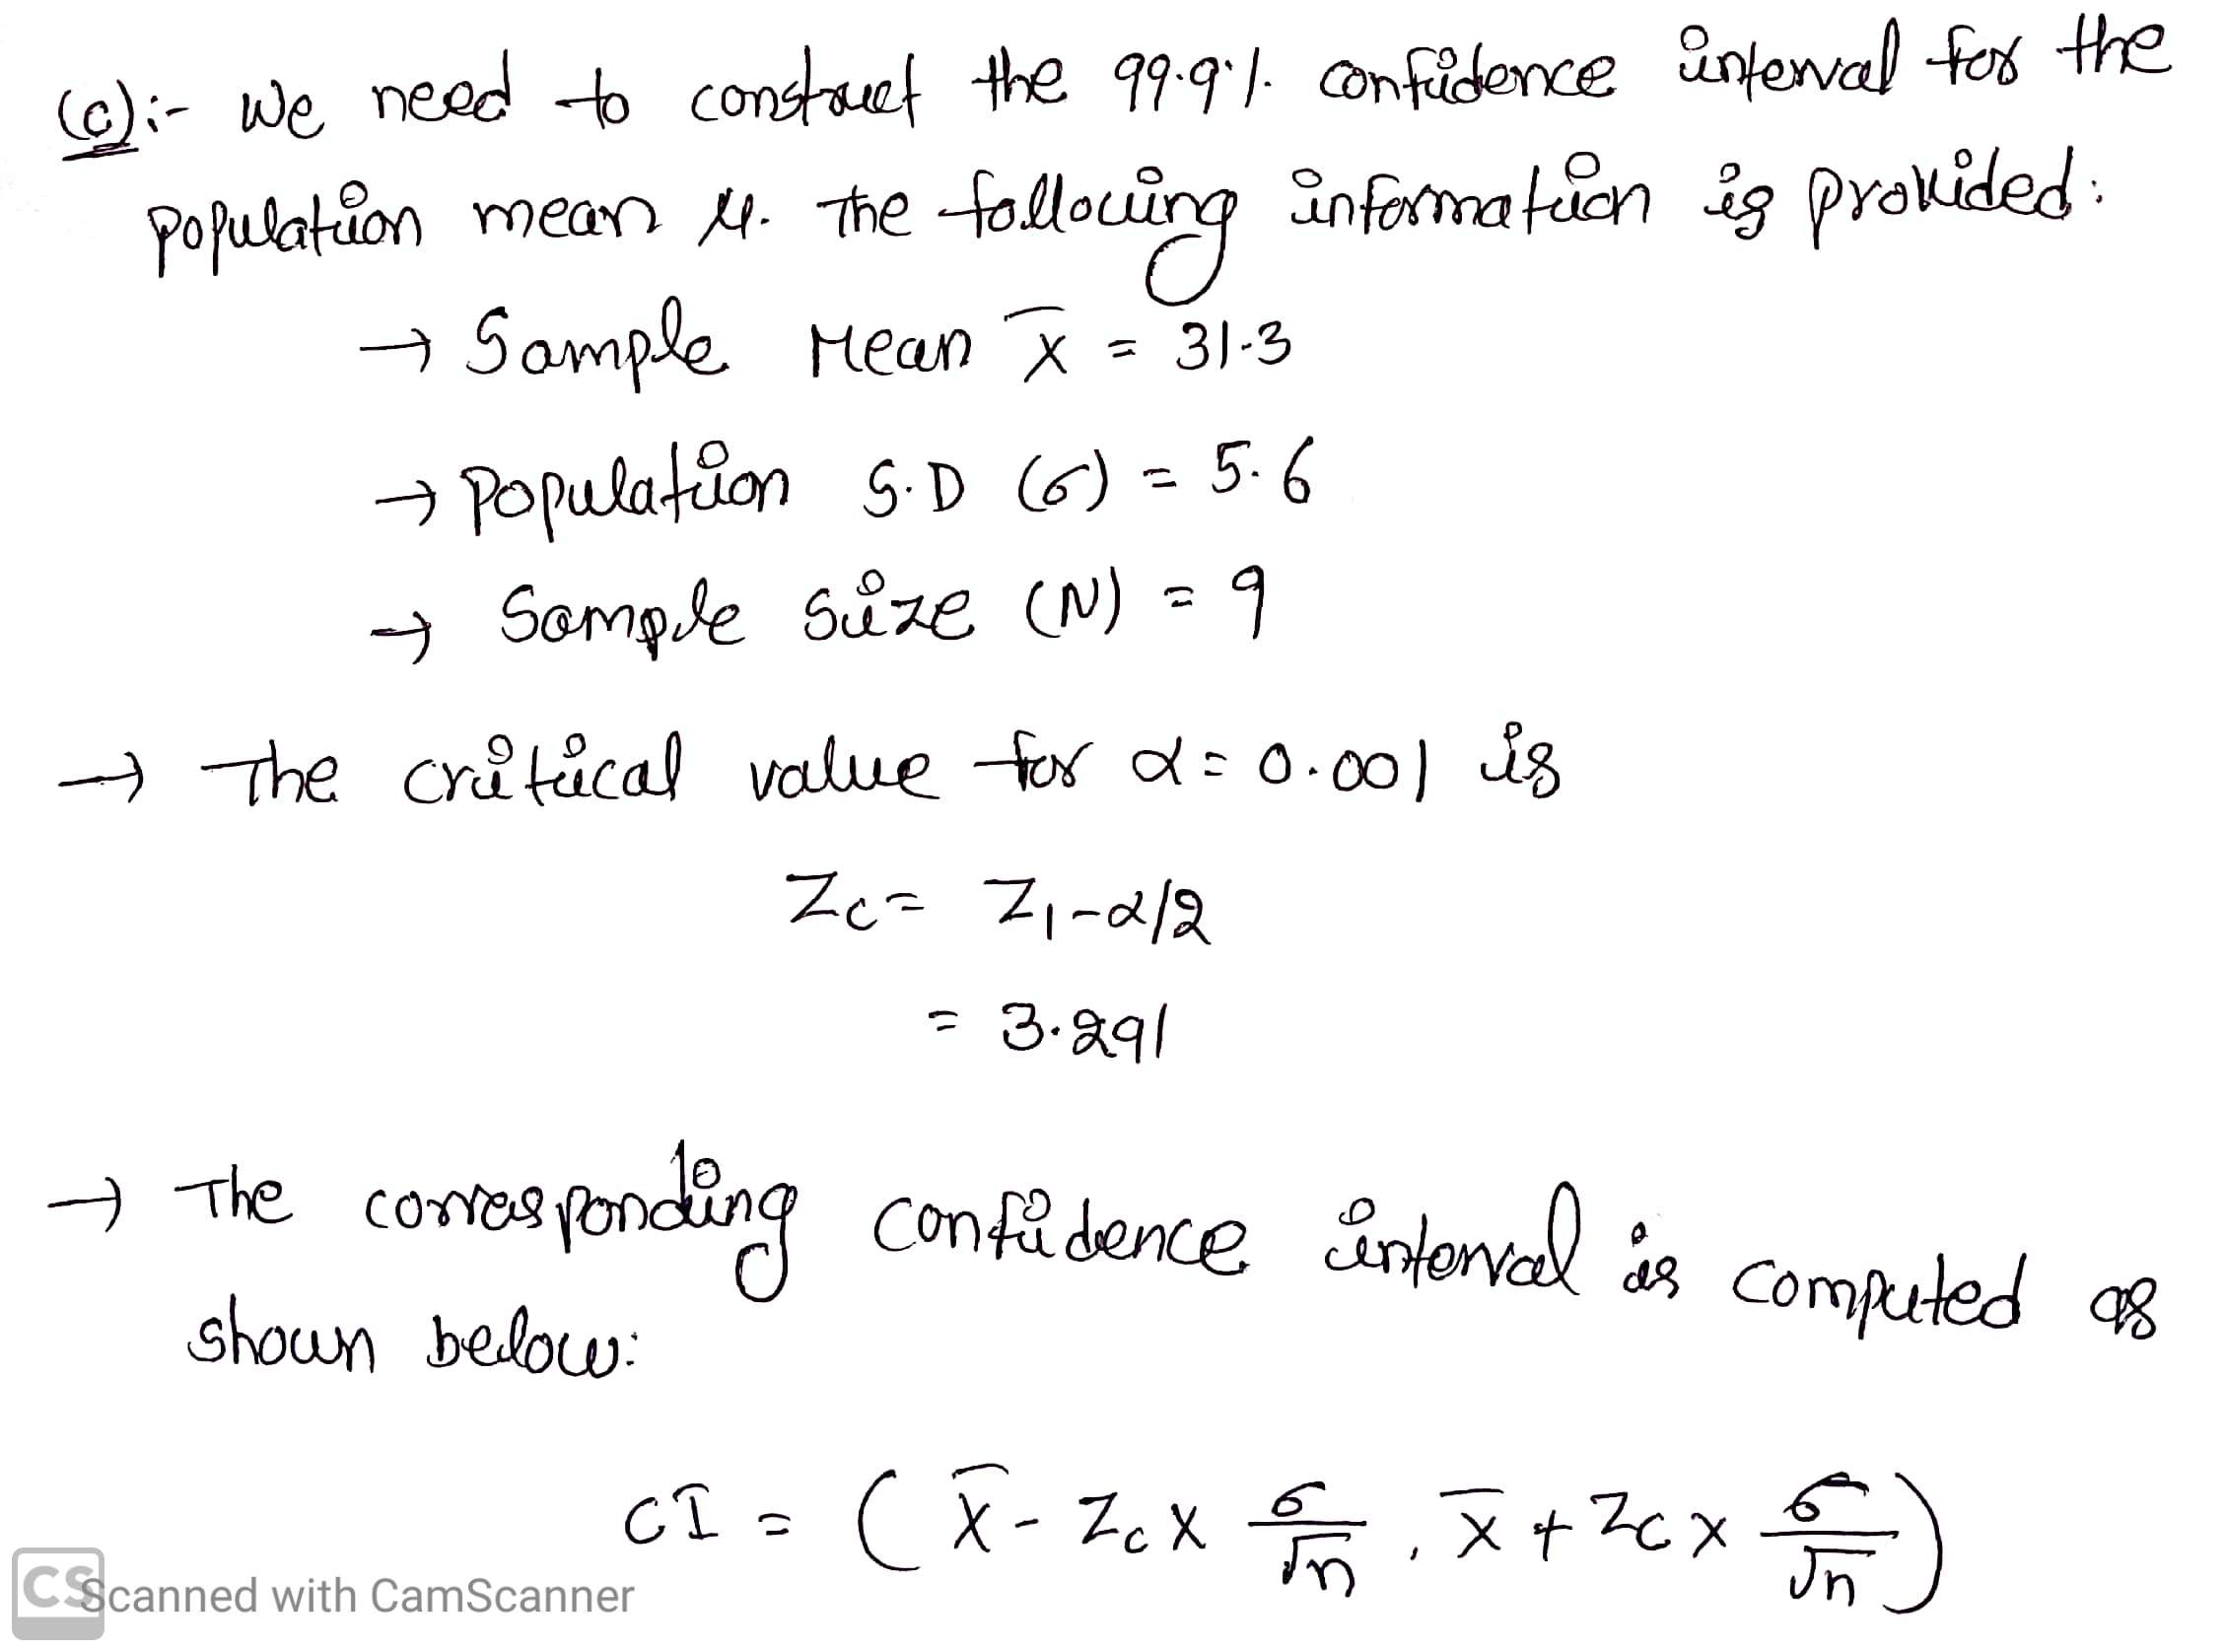 (c):- We need to construct the 99.9% confidence interval for the
population mean μ. The following information is provided:
→ Sample Mean X̅ = 31.3
→ Population S.D (σ) = 5.6
→ Sample size (N) = 9
→ The critical value for α = 0.001 is
Zc = Z1-α/2
= 3.291
→ The corresponding confidence interval is computed as
shown below:
CI = ( X̅ - Zc x σ/√n , X̅ + Zc x σ/√n )
CS Scanned with CamScanner